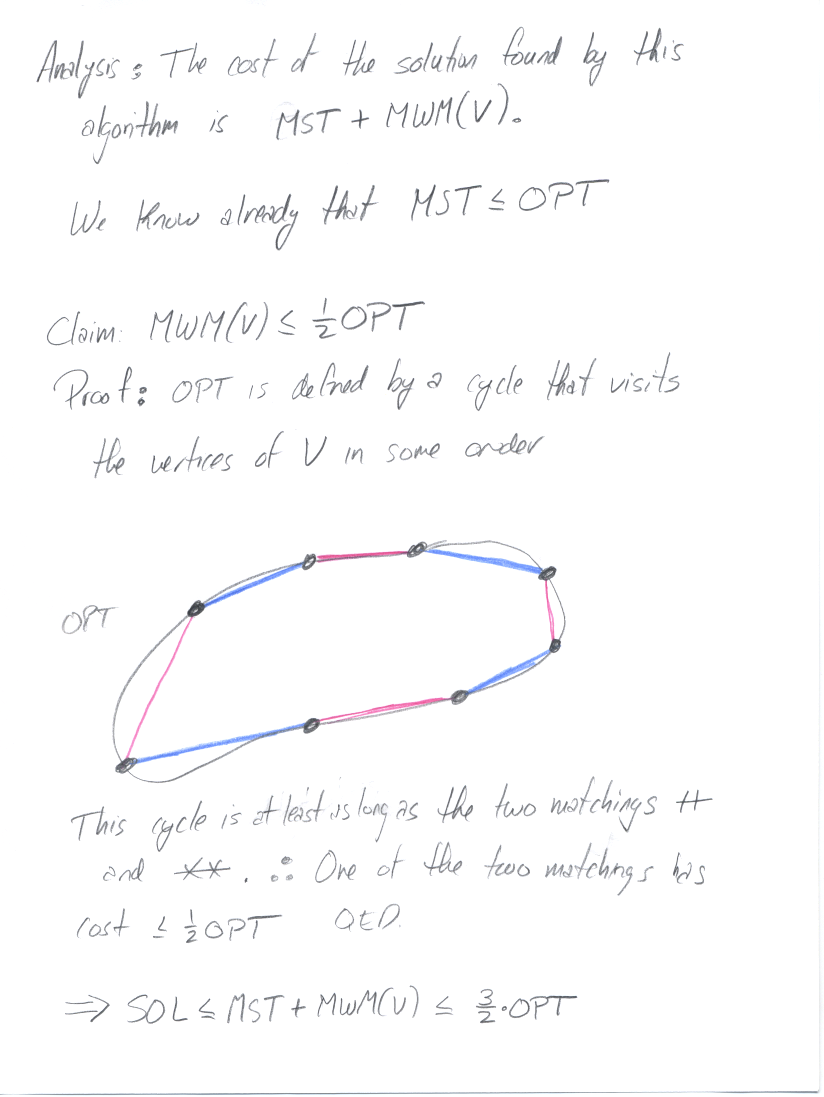 Analysis: The cost of the solution found by this
algorithm is MST + MWM(V).
We know already that MST ≤ OPT
Claim: MWM(V) ≤ 1/2 OPT
Proof: OPT is defined by a cycle that visits
the vertices of V in some order
OPT
This cycle is at least as long as the two matchings ++
and **. ∴ One of the two matchings has
cost ≤ 1/2 OPT QED.
⇒ SOL ≤ MST + MWM(V) ≤ 3/2 · OPT